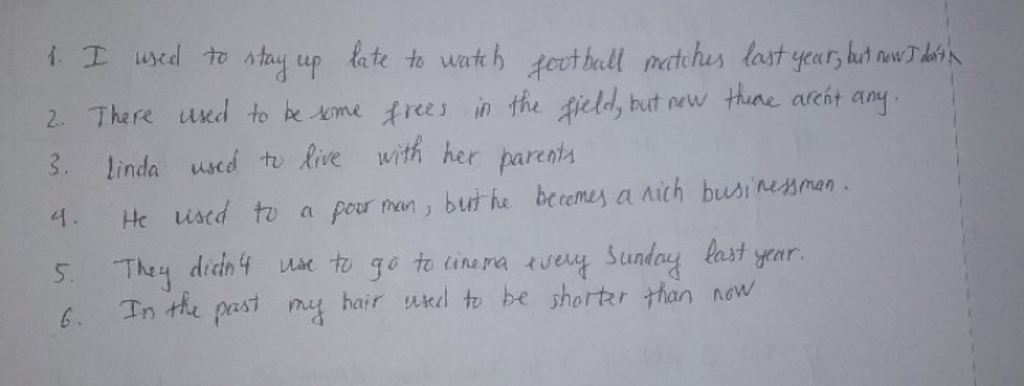 1. I used to stay up late to watch football matches last year, but now I don't
2. There used to be some trees in the field, but now there aren't any.
3. Linda used to live with her parents
4. He used to a poor man, but he becomes a rich businessman.
5. They didn't use to go to cinema every Sunday last year.
6. In the past my hair used to be shorter than now